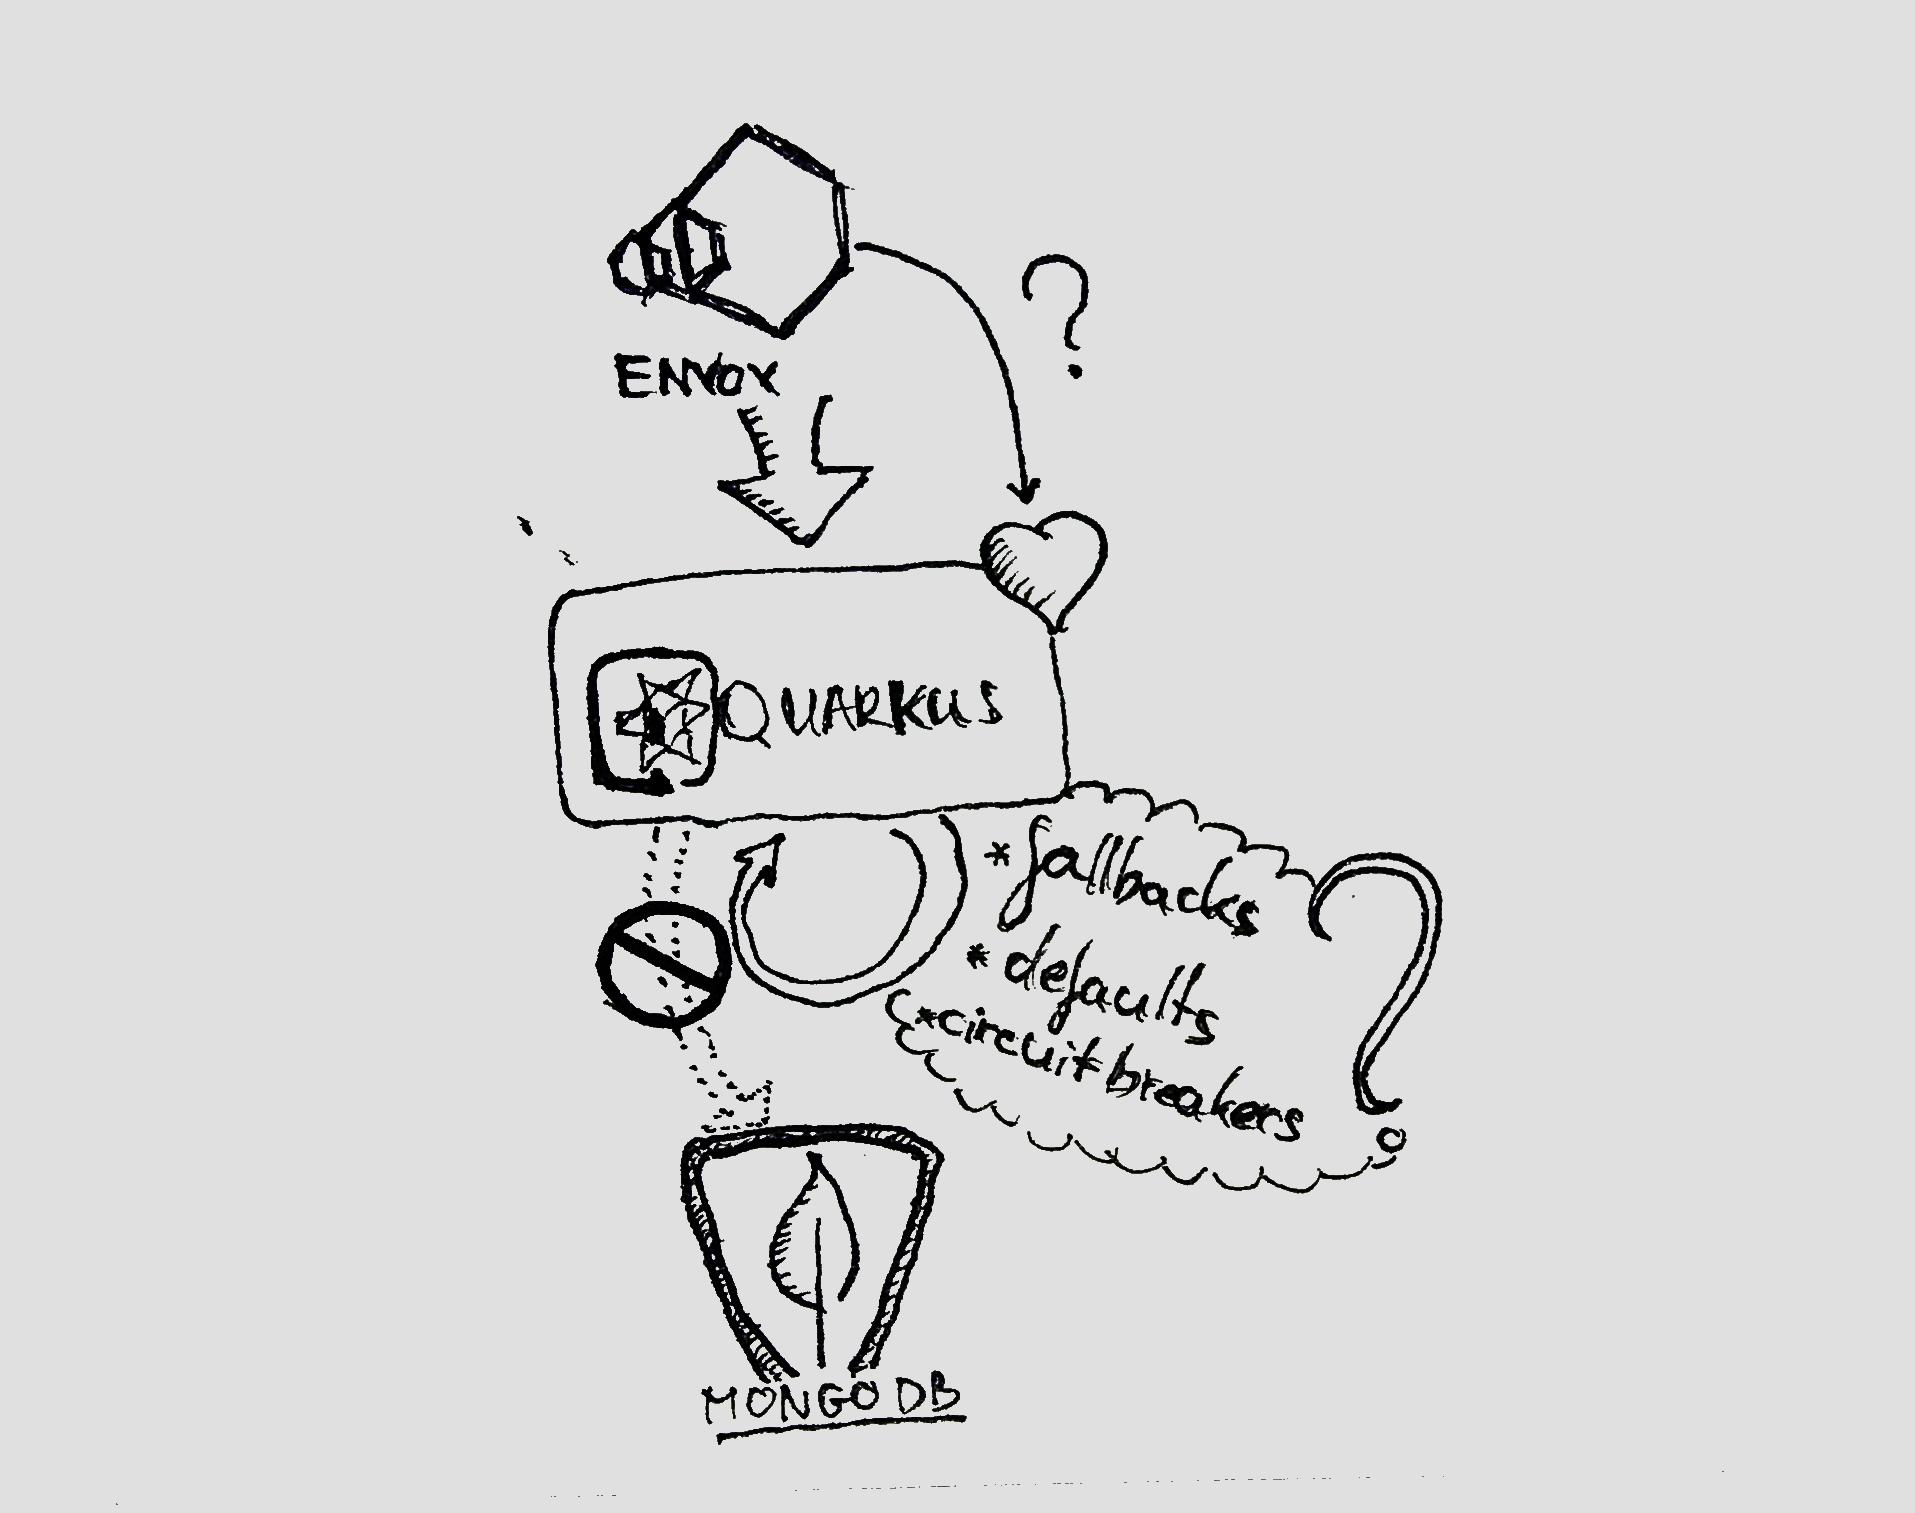 ?
ENVOY
QUARKUS
* fallbacks
* defaults
* circuit breakers
?
MONGO DB